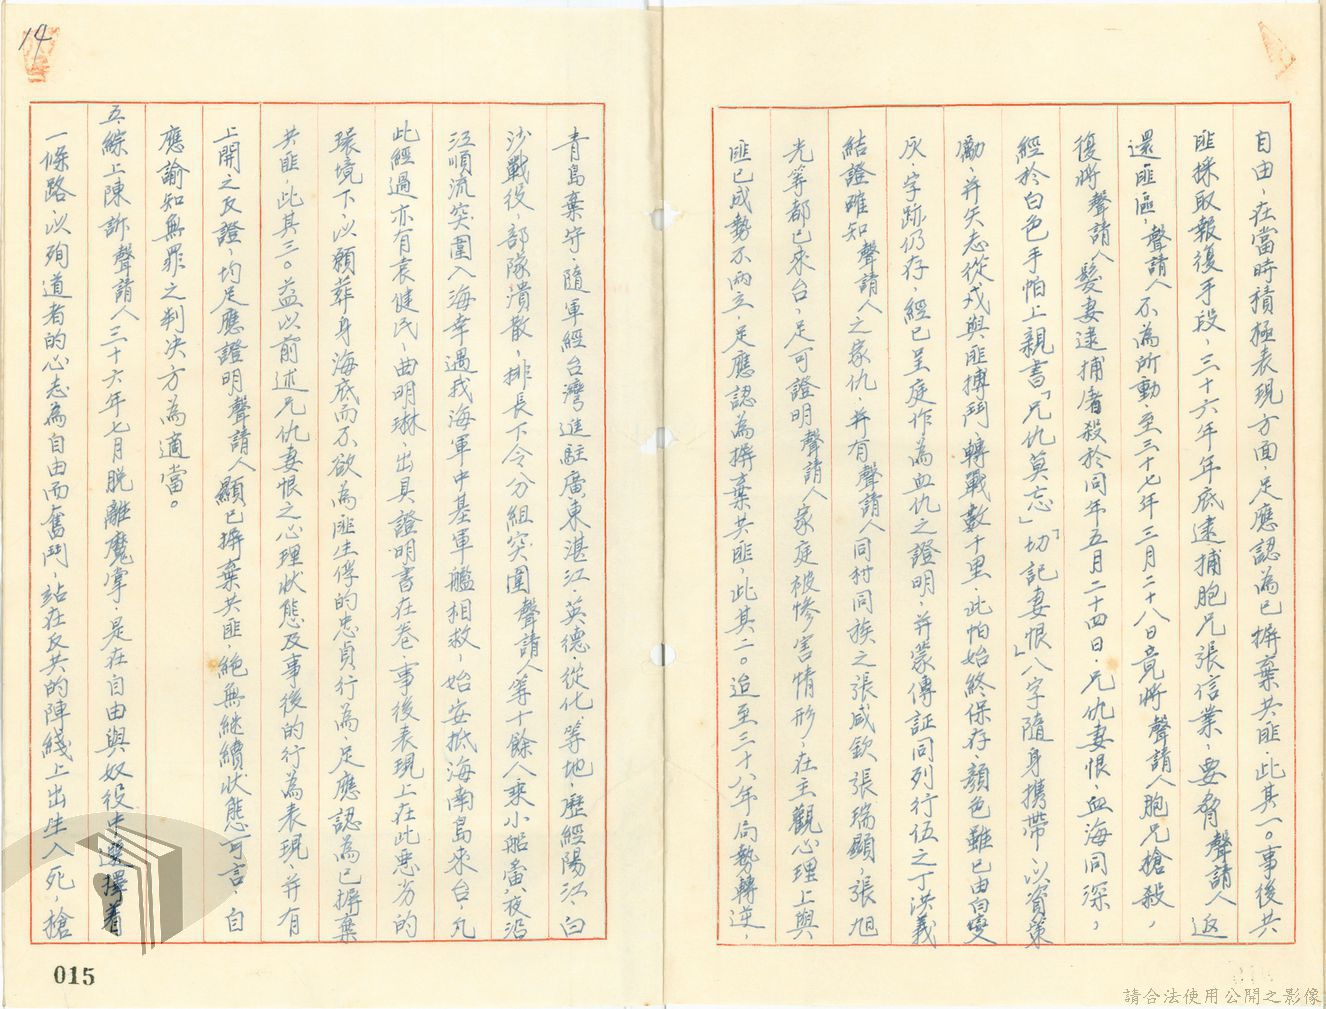 自由，在當時積極表現方面，足應認為已摒棄共匪，此其一。事後共
匪採取報復手段，三十六年年底逮捕胞兄張信業，要脅聲請人返
還匪區，聲請人不為所動，至三十七年三月二十八日竟將聲請人胞兄槍殺，
復將聲請人髮妻逮捕屠殺於同年五月二十四日，兄仇妻恨，血海同深，
經於白色手帕上親書「兄仇莫忘」「切記妻恨」八字隨身攜帶以資策
勵，并矢志從戎與匪搏鬥，轉戰數千里，此帕始終保存，顏色雖已由白變
灰，字跡仍存，經已呈庭作為血仇之證明，并蒙傳証同列行伍之丁洪義
結證確知聲請人之家仇，并有聲請人同村同族之張咸欽，張瑞顯，張旭
光等都已來台，足可證明聲請人家庭被慘害情形，在主觀心理上與
匪已成勢不兩立，足應認為摒棄共匪，此其二。迨至三十八年局勢轉逆，
青島棄守，隨軍經台灣進駐廣東湛江，英德，從化，等地，歷經陽江，白
沙戰役，部隊潰散，排長下令分組突圍，聲請人等十餘人乘小船當夜沿
江順流突圍入海幸遇我海軍中基軍艦相救，始安抵海南島來台，凡
此經過亦有袁健民，曲明琳，出具證明書在卷，事後表現上在此惡劣的
環境下，以願葬身海底而不欲為匪生俘的忠貞行為，足應認為已摒棄
共匪，此其三。益以前述兄仇妻恨之心理狀態及事後的行為表現，并有
上開之反證，均足應證明聲請人顯已摒棄共匪，絕無继續狀態可言，自
應諭知無罪之判決方為適當。
五、綜上陳訴聲請人三十六年七月脱離魔掌，是在自由與奴役中選擇着
一條路，以殉道者的心志為自由而奮鬥，站在反共的陣綫上出生入死，槍
14
015
請合法使用公開之影像